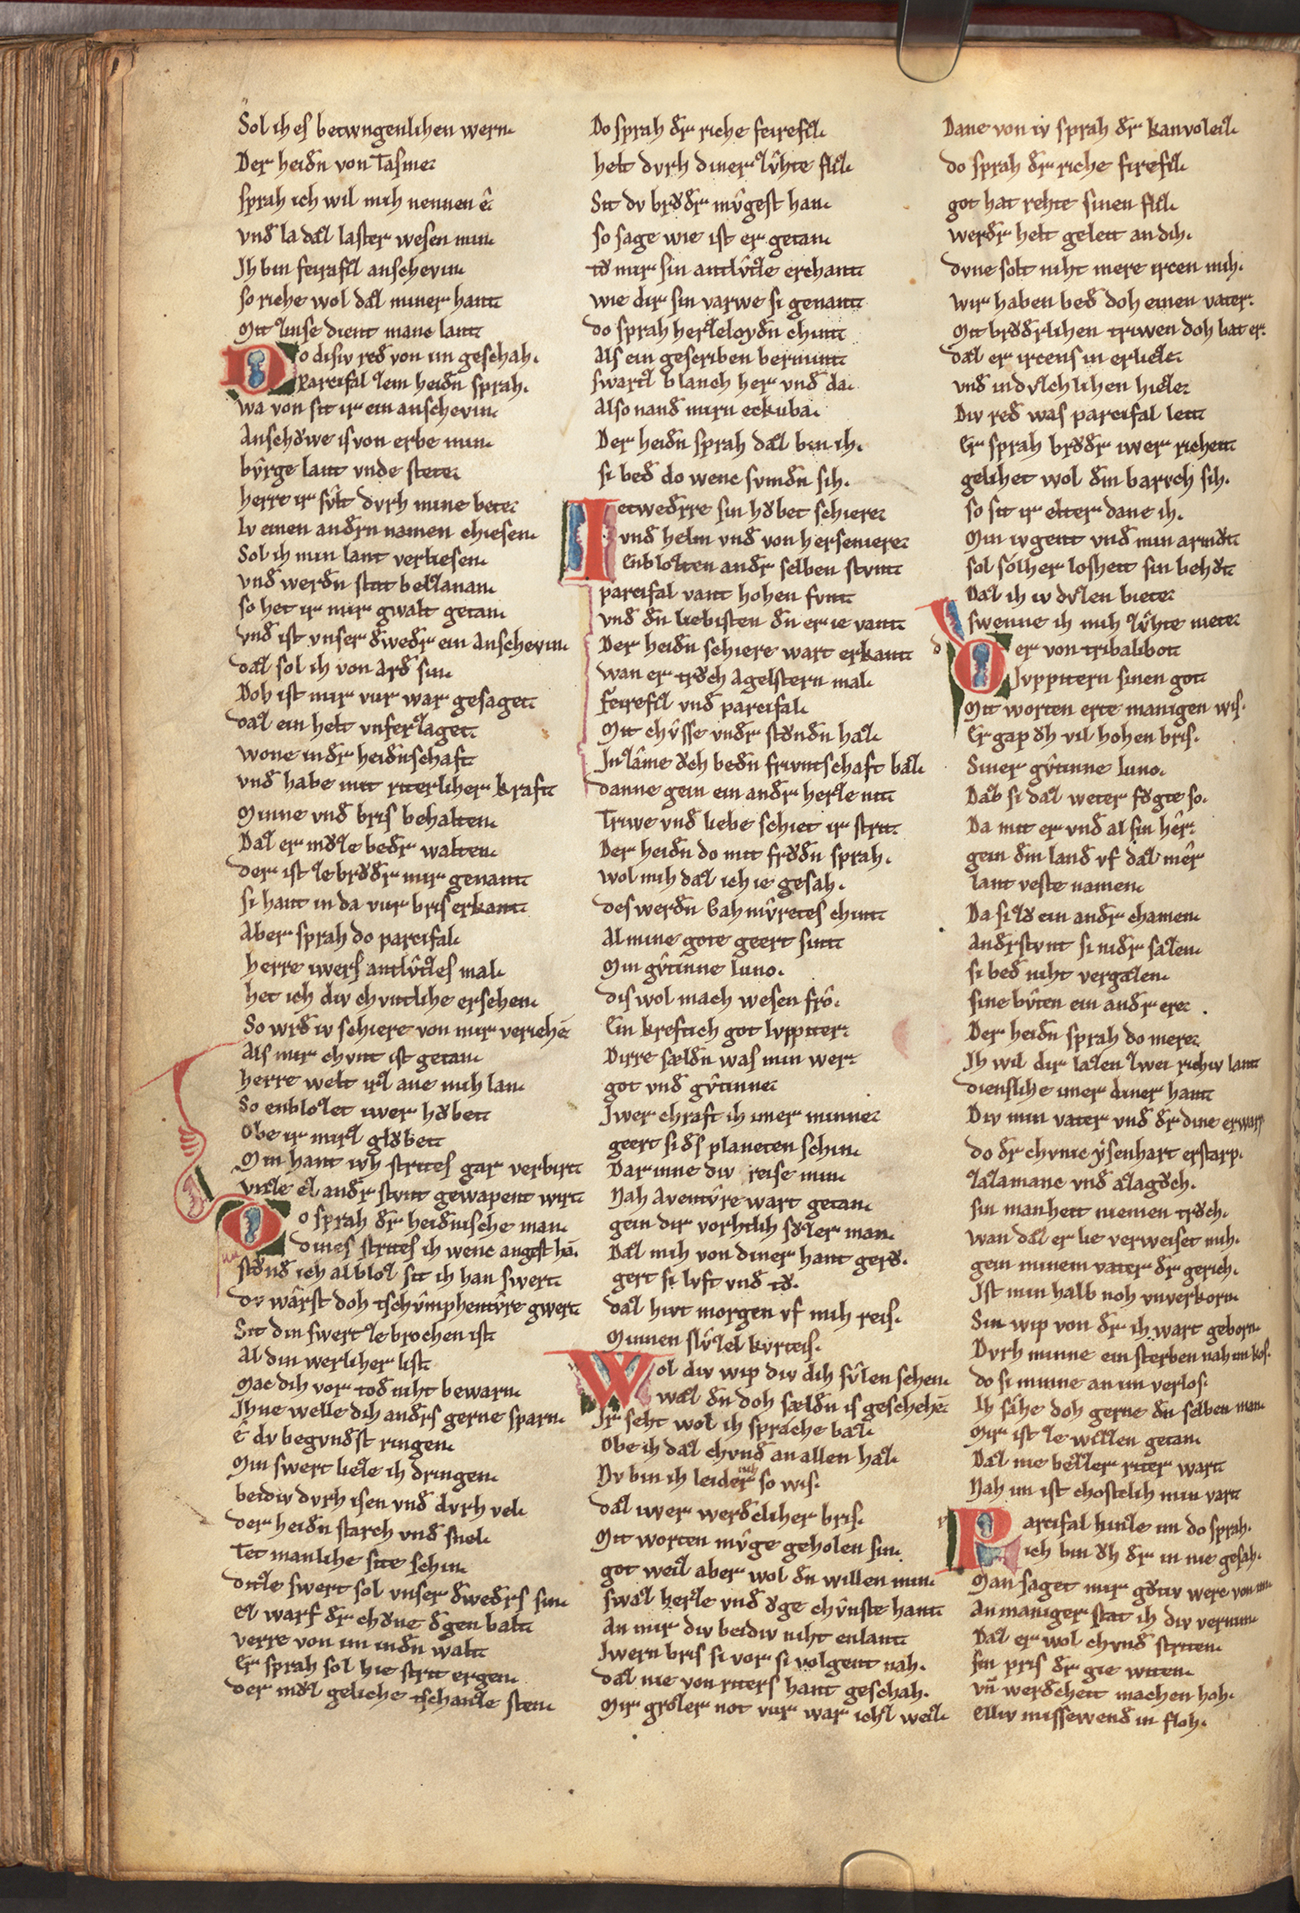 Sol ih es betwngenlihen wern.
Der heidn von Tasme.
sprah ich wil mih nennen ê.
vnd la daz laster wesen min.
Ih bin feirafiz anschevin.
so riche wol daz miner hant.
Mit zinse dient mane lant.
Do disiv red von im geschah.
Parcifal zem heidn sprah.
wa von sit ir ein anschevin.
Anschowe is von erbe min.
bvrge lant vnde stete.
herre ir svlt dvrh mine bete.
Iv einen andrn namen chiesen.
Sol ih min lant verliesen.
vnd werdn stat bezzanan.
so het ir mir gwalt getan.
vnd ist vnser dwedr ein Anschevin.
daz sol ih von Ard sin.
Doh ist mir vur war gesaget.
daz ein helt vnferzaget.
wone indr heidnschaft.
vnd habe mit riterliher kraft.
Minne vnd bris behalten.
Daz er mvze bedr walten.
der ist zebrvdr mir genant.
si hant in da vur bris erkant.
Aber sprah do parcifal.
herre iwers antlvtzes mal.
het ich div chvntlihe ersehen.
So wrd iv schiere von mir veriehe
Als mir chvnt ist getan.
herre welt irz ane mih lan.
So enblozet iwer hobet.
Obe ir mirz globet.
Min hant ivh strites gar verbirt.
vnze ez andr stvnt gewapent wirt.
Do sprah dr heidnische man.
dines strites ih wene angest ha.
stvnd ich al bloz sit ih han swert.
dv wærst doh tschvmphentvre gwert.
Sit din swert ze brochen ist.
Al din werliher list.
Mac dih vor tod niht bewarn.
Ihne welle dih andrs gerne sparn.
ê dv begvndst ringen.
Min swert lieze ih dringen.
beidiv dvrh isen vnd dvrh vel.
der heidn starch vnd snel.
Tet manlihe site schin.
ditze swert sol vnser dwedrs sin.
ez warf dr chvne dgen balt.
verre von im indn walt.
Er sprah sol hie strit ergen.
der mvz geliche tschantze sten.
Do sprah dr riche feirefiz.
helt dvrh diner zvhte fliz.
Sit dv brvdr mvgest han.
so sage wie ist er getan.
tv mir sin antlvtze erchant.
wie dir sin varwe si genant.
do sprah herzeloydn chint.
Als ein gescriben bermint.
swarz blanch her vnd da.
Also nand mirn eckuba.
Der heidn sprah daz bin ih.
si bed do wenc svmdn sih.
Ietwedrre sin hobet schiere.
vnd helm vnd von herseniere.
Enblozten andr selben stvnt.
parcifal vant hohen fvnt.
vnd dn liebisten dn er ie vant.
Der heidn schiere wart erkant.
wan er trvch agelstern mal.
Feirefiz vnd parcifal.
Mit chvsse vndr stvndn haz.
In zame och bedn frivntschaft baz.
danne gein ein andr herze nit.
Triwe vnd liebe schiet ir strit.
Der heidn do mit frovdn sprah.
wol mih daz ich ie gesah.
des werdn Gahmvretes chint.
Al mine gote geert sint.
Min gvtinne Iuno.
dis wol mach wesen fro.
Ein kreftich got Ivppiter.
Dirre sældn was min wer.
got vnd gvtinne.
Iwer chraft ih imer minne.
geert si ds planeten schin.
Dar inne div reise min.
Nah Aventvre wart getan.
gein dir vorhtlih svzer man.
Daz mih von diner hant gero.
gert si lvft vnd to.
daz hivt morgen vf mih reis.
Minnen slvzel kvrteis.
Wol div wip div dih svlen sehen.
waz dn doh sældn is geschehe
Ir seht wol ih spræche baz.
Obe ih daz chvnd an allen haz.
Nv bin ih leider niht so wis.
daz iwer werdcliher bris.
Mit worten mvge geholen sin.
got weiz aber wol dn willen min.
swaz herze vnd oge chvnste hant.
An mir div beidiv niht enlant.
Iwern bris si vor si volgent nah.
daz nie von riters hant geschah.
Mir grozer not vur war ichz weiz.
Dane von iv sprah dr kanvoleiz.
do sprah dr riche firefiz.
got hat rehte sinen fliz.
werdr helt geleit an dih.
dvne solt niht mere ircen mih.
wir haben bed doh einen vater.
Mit brvdrlihen triwen doh bat er.
daz er ircens in erlieze.
vnd in dvtzchlihen hieze.
Div red was parcifal leit.
Er sprah brvdr iwer richeit.
gelihet wol dm barvch sih.
so sit ir elter dane ih.
Min ivgent vnd min armvt.
sol solher losheit sin behvt.
Daz ih iv dvzen biete.
swenne ih mih zvhte niete.
Der von tribalibot.
Ivppitern sinen got.
Mit worten erte manigen wis.
Er gap oh vil hohen bris.
Siner gvtinne Iuno.
Daz si daz weter fvgte so.
Da mit er vnd al sin her.
gein dm land vf daz mer
lant veste namen.
Da si zv ein andr chamen.
Andrstvnt si nidr sazen.
si bed niht vergazen.
sine bvten ein andr ere.
Der heidn sprah do mere.
Ih wil dir lazen zwei richiv lant
dienslihe imer diner hant.
Div min vater vnd dr dine erwarp
do dr chvnic ysenhart erstarp.
zazamanc vnd azagoch.
sin manheit niemen troch.
wan daz er lie verweiset mih.
gein minem vater dr gerich.
Ist min halb noh vnverkorn.
Sin wip von dr ih wart geborn.
Dvrh minne ein sterben nah im kos.
do si minne an im verlos.
Ih sæhe doh gerne dn selben man.
Mir ist ze wizzen getan.
Daz nie bezzer riter wart.
Nah im ist chostelih min vart.
Parcifal hinze im do sprah.
ich bin oh dr in nie gesah.
Man saget mir gvtiv werc von im
An maniger stat ih div vernim
Daz er wol chvnd striten.
sin pris dr gie witen.
vn werdcheit machen hoh.
elliv missewend in floh.